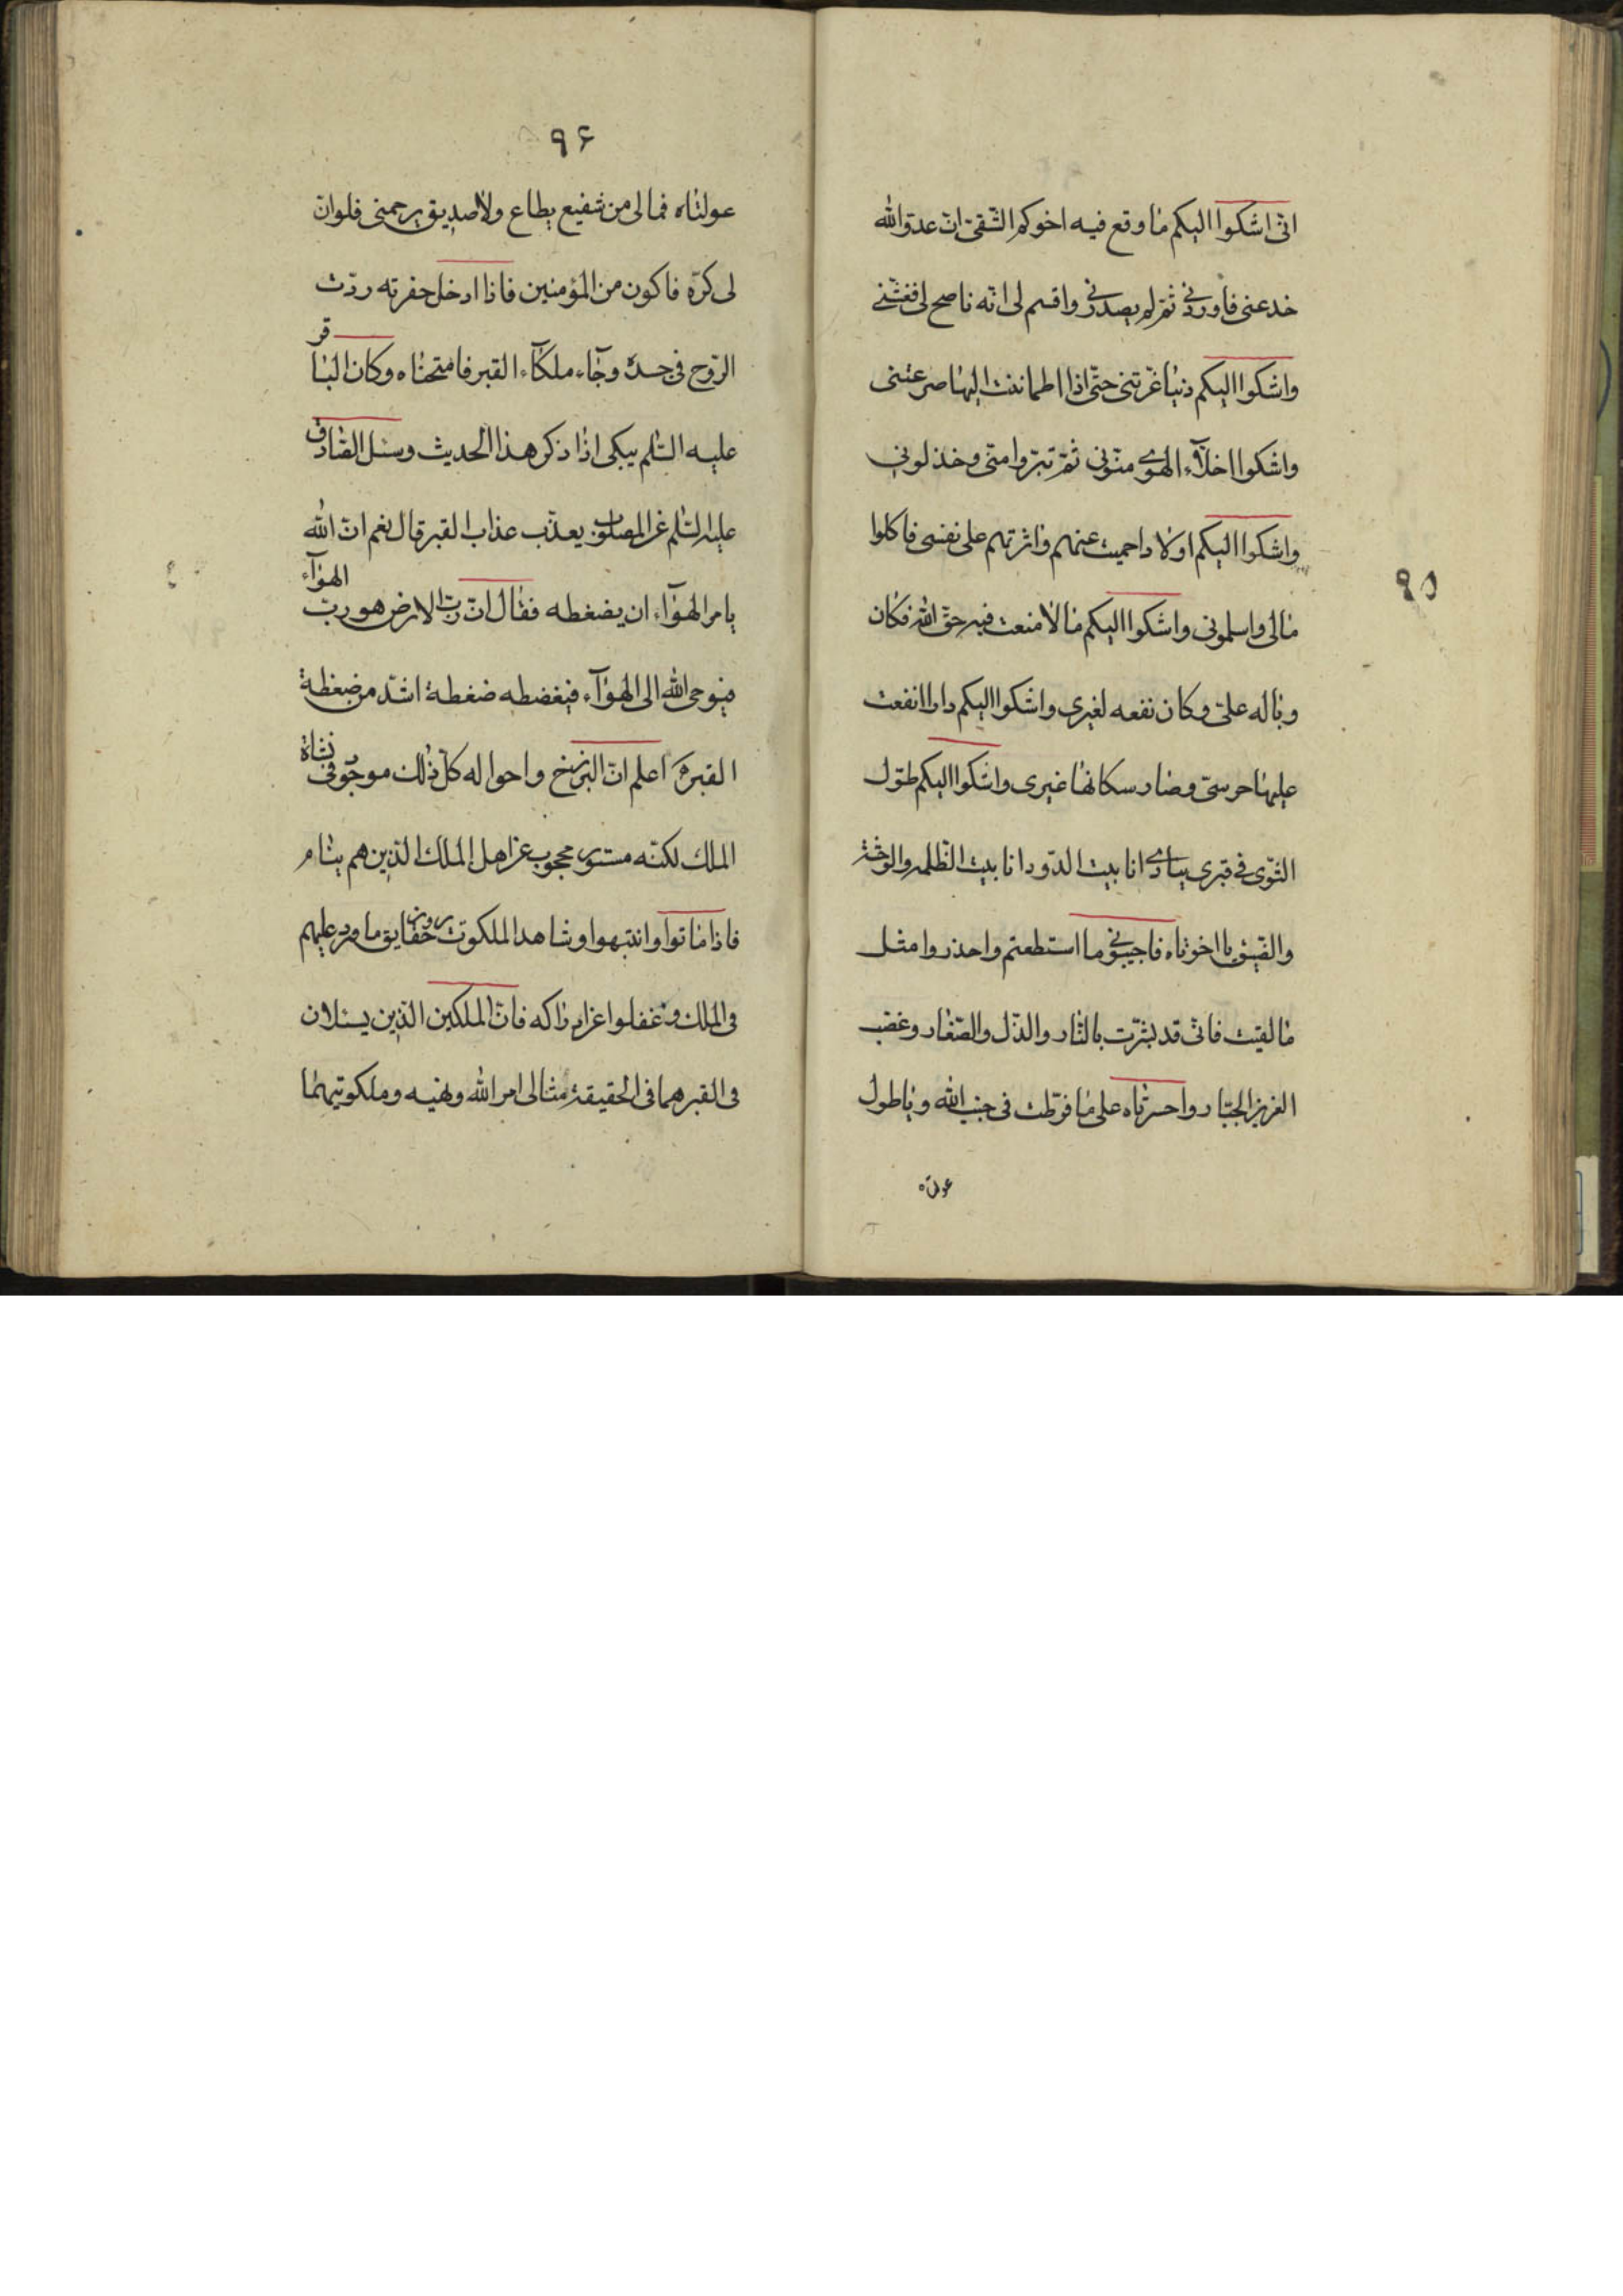 ۹۵
انّی اشکوا الیکم ما وقع فیه اخوکم الشّقیّ انّ عدوّ الله
خدعنی فاوردنی ثمّ لم یصدرنی واقسم لی انّه ناصح لی فغشّنی
واشکوا الیکم دنیا غرّتنی حتّی اذا اطماننت الیها صرعتنی
واشکوا اخلّآء الهوی منّونی ثمّ تبرّوا منّی وخذلونی
واشکوا الیکم اولادا حمیت عنهم واثرتهم علی نفسی فاکلوا
مالی واسلمونی واشکوا الیکم مالا منعت فیه حق الله فکان
وباله علیّ وکان نفعه لغیری واشکوا الیکم دارا انفعت
علیها حرسی وصار سکانها غیری واشکوا الیکم طول
الثّوی فی قبری ینادی انا بیت الدّود انا بیت الظّلمه والوحشة
والضیق یا اخوتاه فاحبسونی ما استطعتم واحذروا مثل
ما لقیت فانّی قد بشّرت بالنّار والذّل والصّغار وغضب
العزیز الجبّار واحسرتاه علی ما فرّطت فی جنب الله ویا طول
عولتاه
۹۶
عولتاه فمالی من شفیع یطاع ولا صدیق یرحمنی فلوانّ
لی کرّة فاکون من المؤمنین فاذا ادخل حفرته ردّت
الرّوح فی جسده وجآء ملکآء القبر فامتحناه وکان الباقر
علیه السّلم یبکی اذا ذکر هذا الحدیث وسئل الصّادق
علیه السّلم عن المصلوب یعذّب عذاب القبر قال نعم انّ الله
یامر الهوآء ان یضغطه فقال انّ ربّ الارض هو ربّ الهوآء
فیوحی الله الی الهوآء فیغضطه ضغطة اشدّ من ضغطة
القبر اعلم انّ البرزخ واحواله کلّ ذلک موجود فی نشاة
الملک لکنّه مستور محجوب عن اهل الملک الّذین هم ینام
فاذا ماتوا وانتبهوا وشاهد الملکوت حقایق ما ورد علیهم
فی الملک وغفلوا عن ادراکه فانّ الملکین الّذین یسئلان
فی القبر هما فی الحقیقة مثالی امر الله ونهیه وملکوتیهما